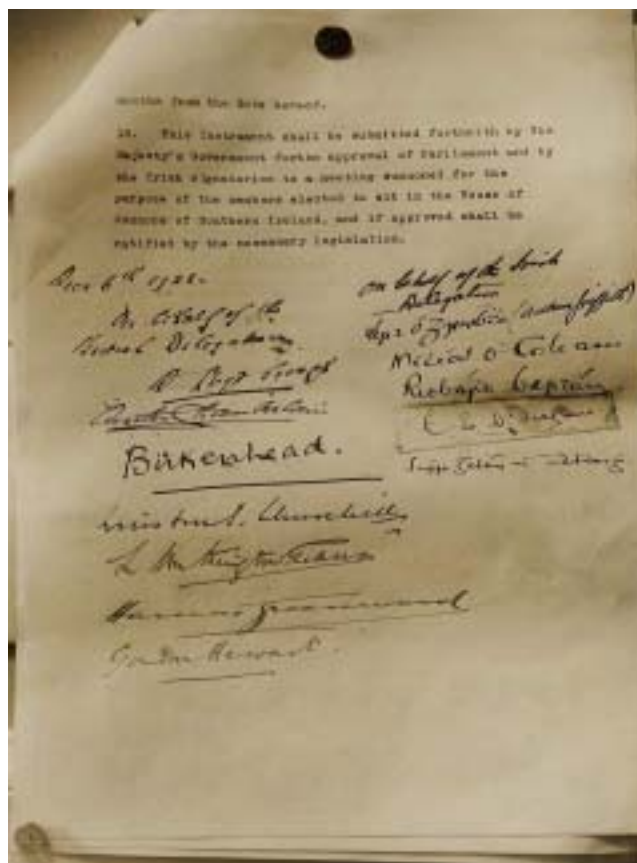 months from the date hereof.
18. This instrument shall be submitted forthwith by His
Majesty's Government for the approval of Parliament and by
the Irish signatories to a meeting summoned for the
purpose of the members elected to sit in the House of
Commons of Southern Ireland, and if approved shall be
ratified by the necessary legislation.
Dec 6th 1921.
On behalf of the
British Delegation
D Lloyd George
Austen Chamberlain
Birkenhead.
Winston S. Churchill
L Worthington Evans
Hamar Greenwood
Gordon Hewart.
On behalf of the Irish
Delegation
Art Ó Gríobhtha
Micheál Ó Coileain
Riobárd Bartún